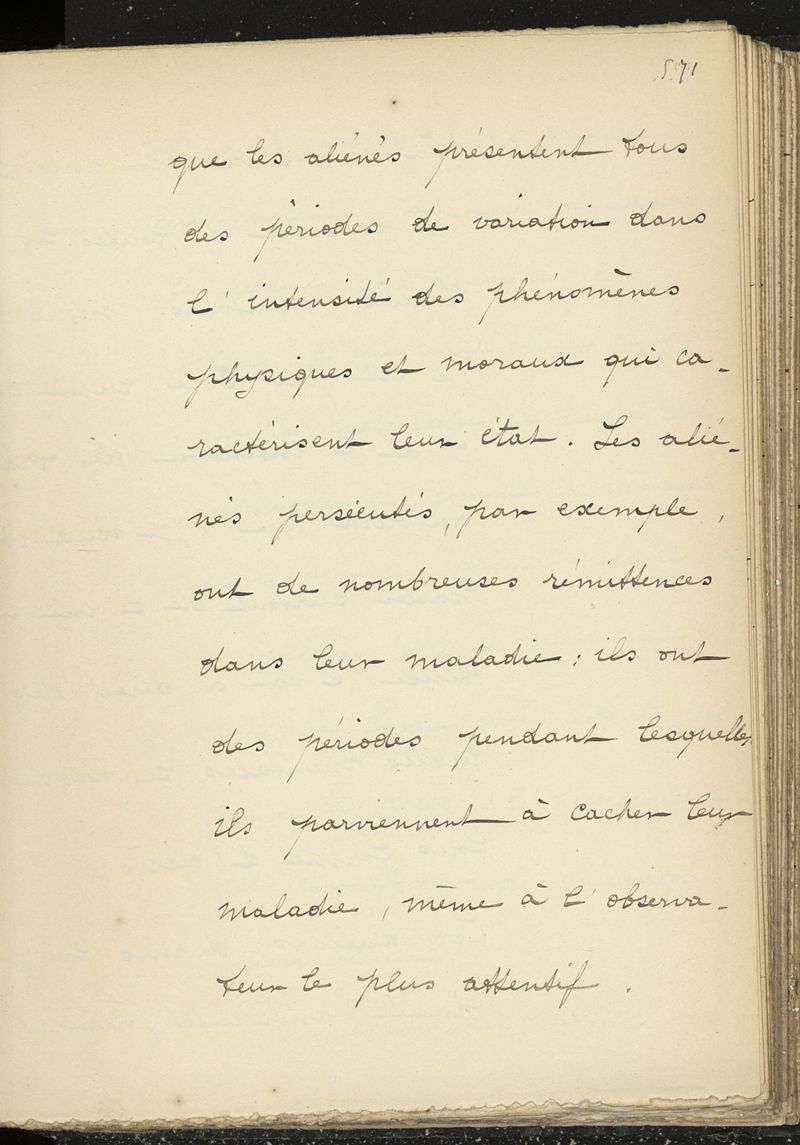 571
que les aliénés présentent tous
des périodes de variation dans
l'intensité des phénomènes
physiques et moraux qui ca-
ractérisent leur état. Les alié-
nés persécutés, par exemple,
ont de nombreuses rémittences
dans leur maladie : ils ont
des périodes pendant lesquelles
ils parviennent à cacher leur
maladie, même à l'observa-
teur le plus attentif.